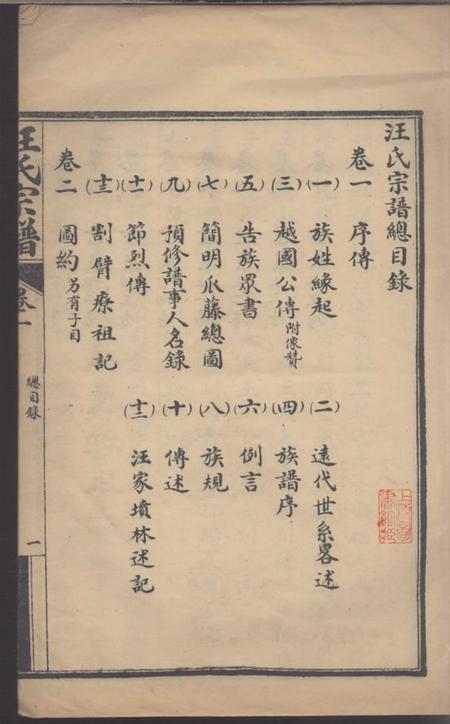 汪氏宗譜總目錄
卷一 序傳
(一) 族姓緣起 (二) 遠代世系畧述
(三) 越國公傳 附像贊 (四) 族譜序
(五) 告族眾書 (六) 例言
(七) 簡明瓜藤總圖 (八) 族規
(九) 預修譜事人名錄 (十) 傳述
(十一) 節烈傳 (十二) 汪家墳林述記
(十三) 割臂療祖記
卷二 圖約 另有子目
汪氏宗譜 卷一 總目錄 一